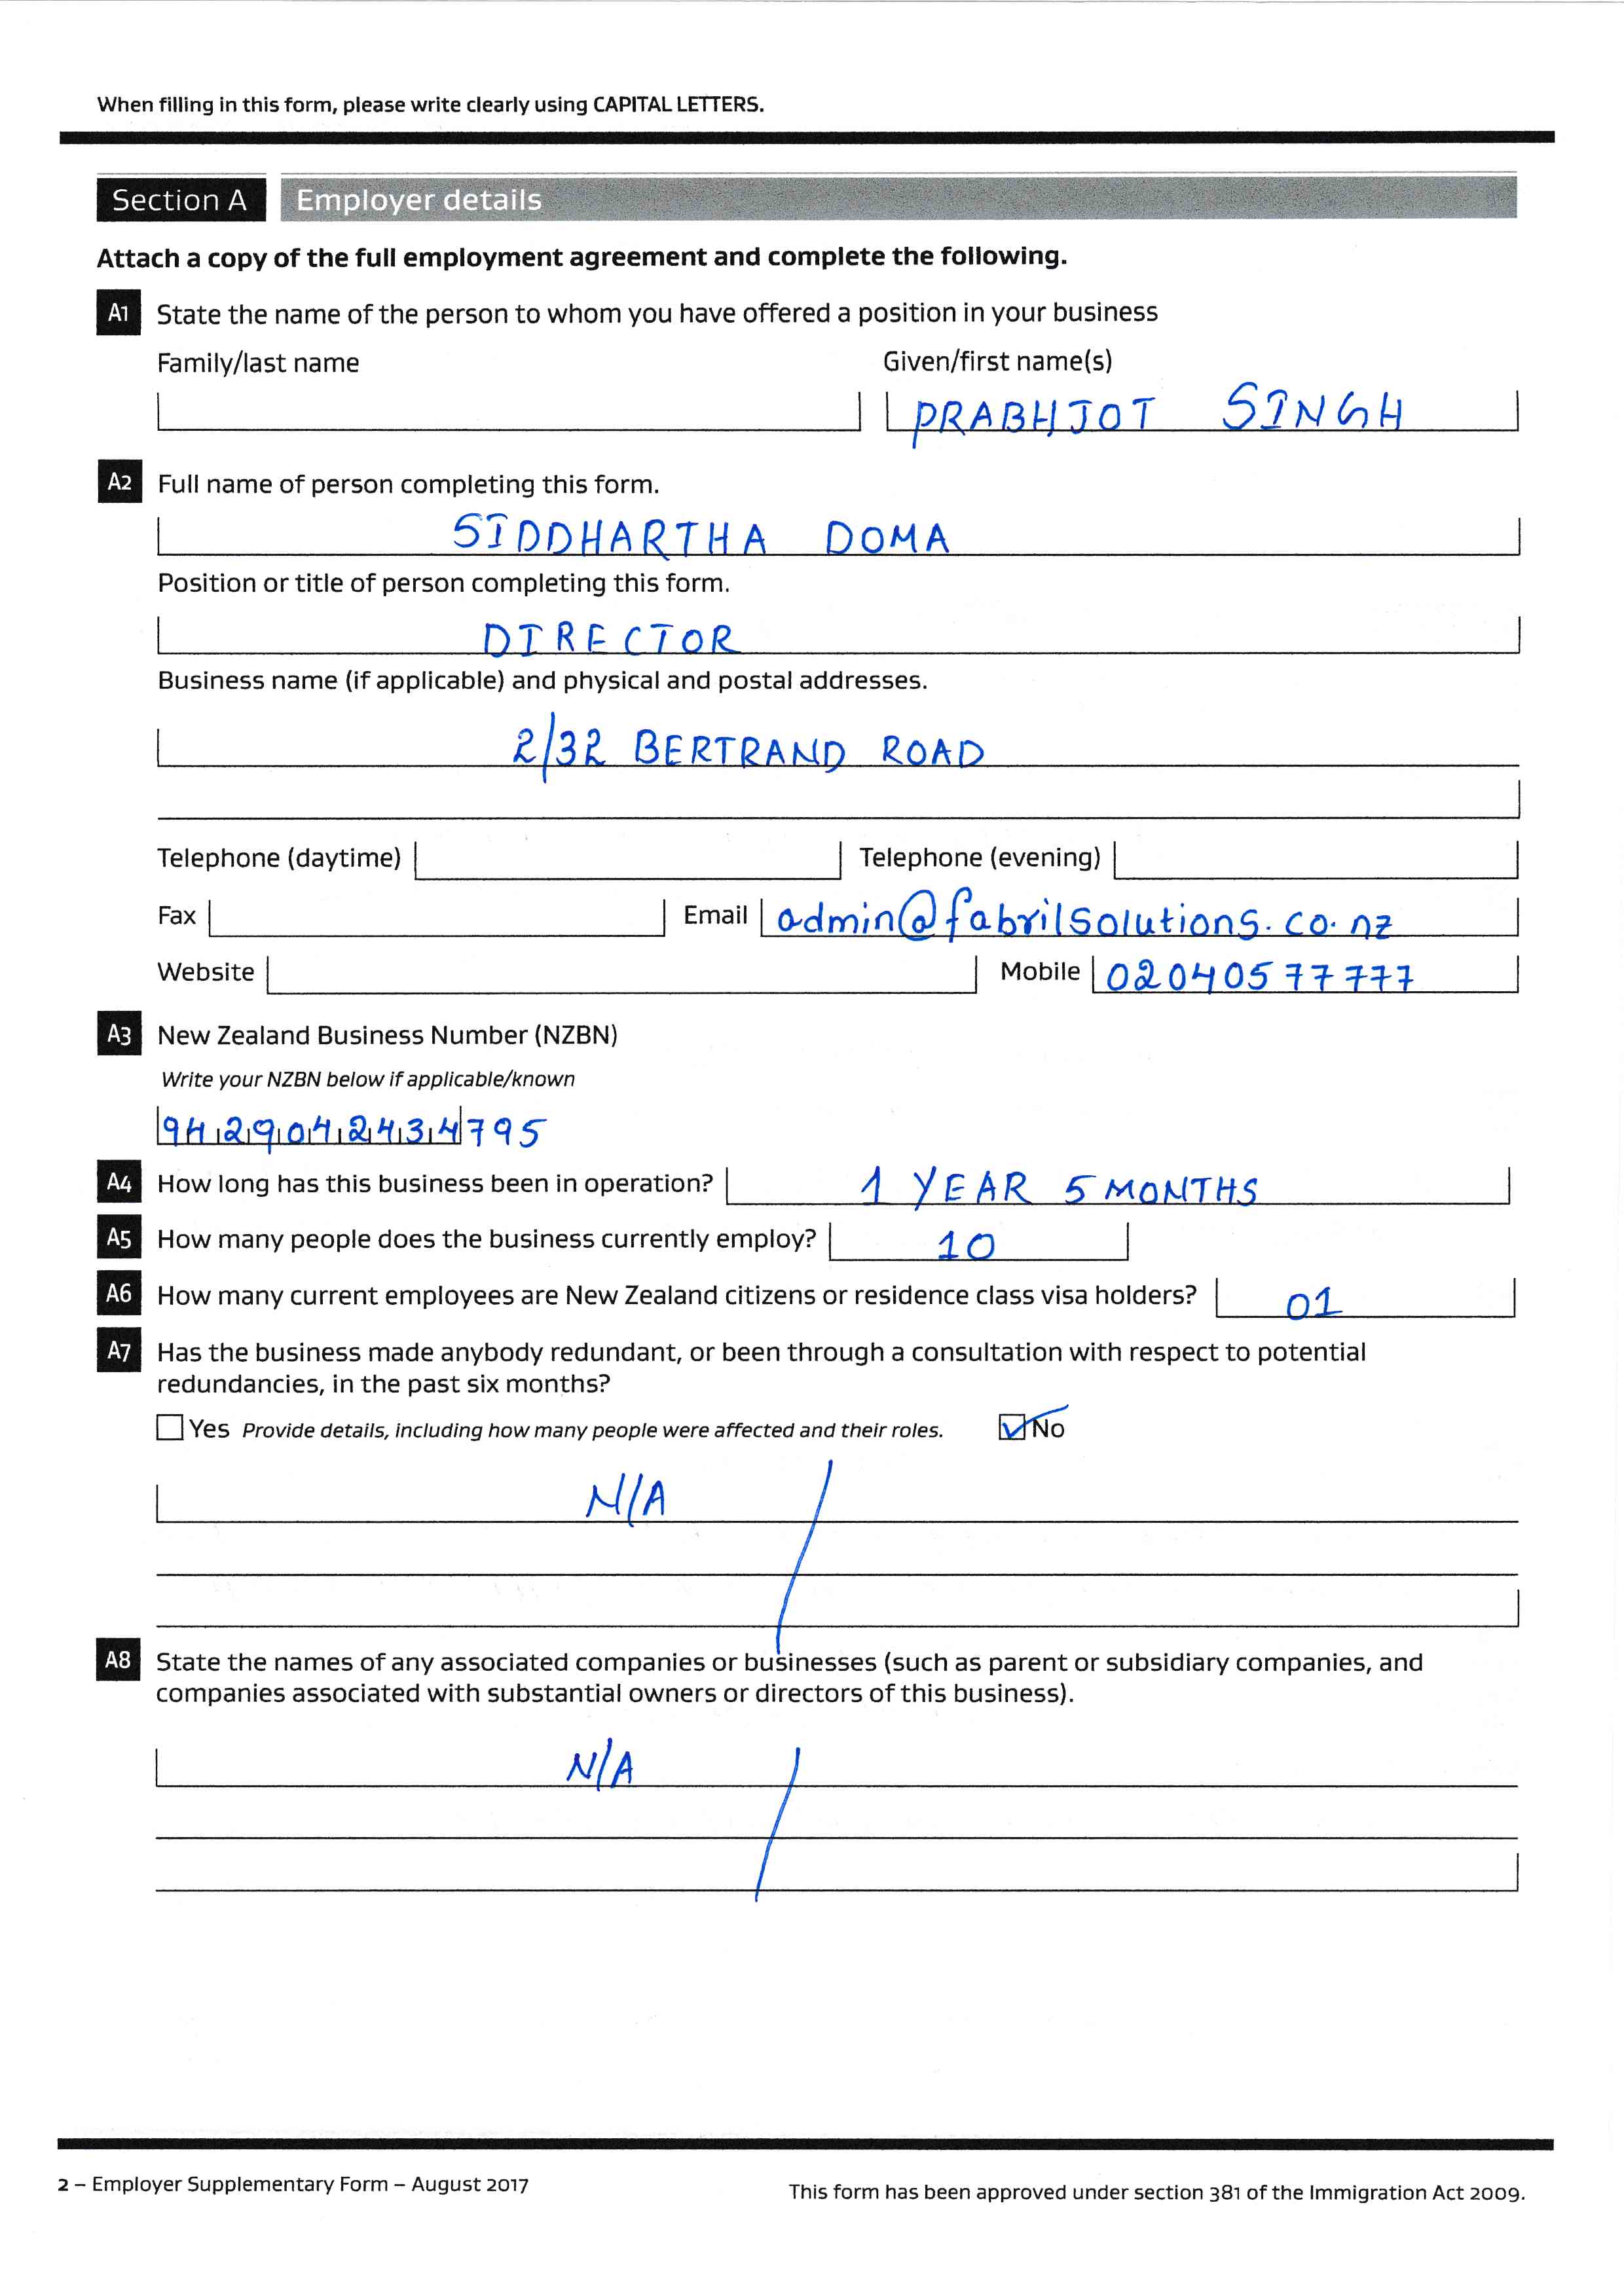 When filling in this form, please write clearly using CAPITAL LETTERS.
Section A Employer details
Attach a copy of the full employment agreement and complete the following.
A1 State the name of the person to whom you have offered a position in your business
Family/last name Given/first name(s)
PRABHJOT SINGH
A2 Full name of person completing this form.
SIDDHARTHA DOMA
Position or title of person completing this form.
DIRECTOR
Business name (if applicable) and physical and postal addresses.
2/32 BERTRAND ROAD
Telephone (daytime) Telephone (evening)
Fax Email admin@fabrilsolutions.co.nz
Website Mobile 02040577777
A3 New Zealand Business Number (NZBN)
Write your NZBN below if applicable/known
9429042434795
A4 How long has this business been in operation? 1 YEAR 5 MONTHS
A5 How many people does the business currently employ? 10
A6 How many current employees are New Zealand citizens or residence class visa holders? 01
A7 Has the business made anybody redundant, or been through a consultation with respect to potential
redundancies, in the past six months?
Yes Provide details, including how many people were affected and their roles. No
N/A
A8 State the names of any associated companies or businesses (such as parent or subsidiary companies, and
companies associated with substantial owners or directors of this business).
N/A
2 – Employer Supplementary Form – August 2017 This form has been approved under section 381 of the Immigration Act 2009.